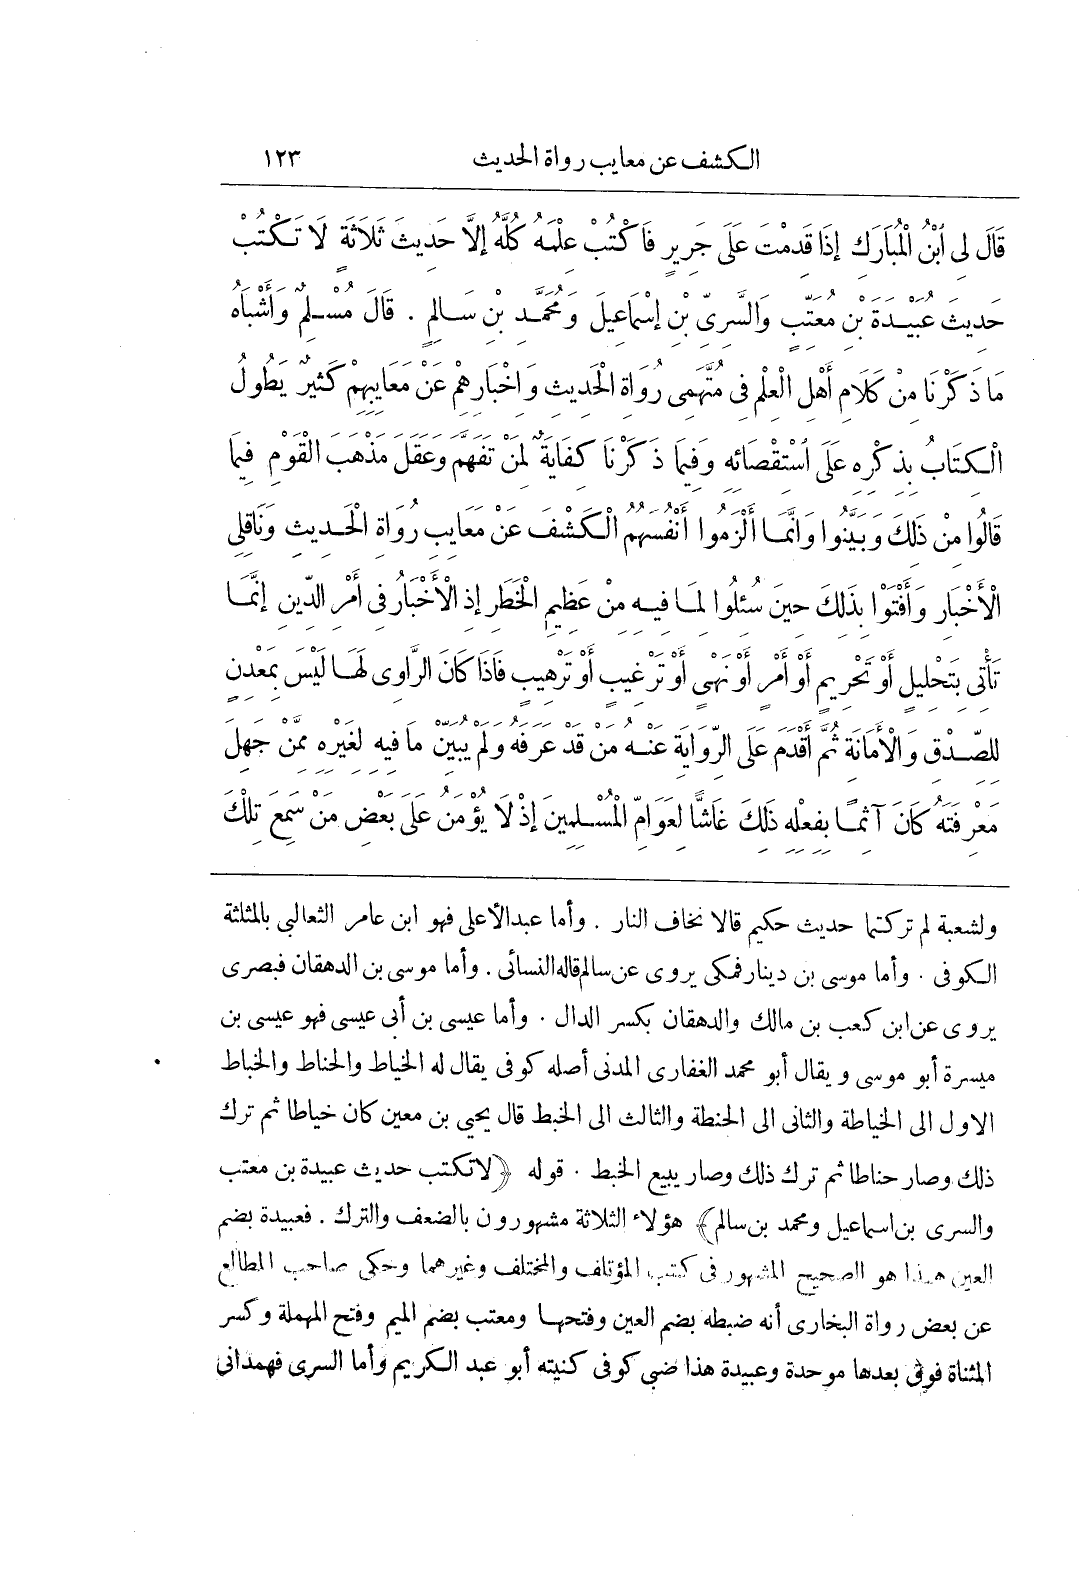 الكشف عن معايب رواة الحديث ١٢٣
قَالَ لِي ابْنُ الْمُبَارَكِ إِذَا قَدِمْتَ عَلَى جَرِيرٍ فَاكْتُبْ عِلْمَهُ كُلَّهُ إِلَّا حَدِيثَ ثَلَاثَةٍ لَا تَكْتُبْ
حَدِيثَ عُبَيْدَةَ بْنِ مُعَتِّبٍ وَالسَّرِيِّ بْنِ إِسْمَاعِيلَ وَمُحَمَّدِ بْنِ سَالِمٍ . قَالَ مُسْلِمٌ وَأَشْبَاهُ
مَا ذَكَرْنَا مِنْ كَلَامِ أَهْلِ الْعِلْمِ فِي مُتَّهَمِي رُوَاةِ الْحَدِيثِ وَإِخْبَارِهِمْ عَنْ مَعَايِبِهِمْ كَثِيرٌ يَطُولُ
الْكِتَابُ بِذِكْرِهِ عَلَى اسْتِقْصَائِهِ وَفِيمَا ذَكَرْنَا كِفَايَةٌ لِمَنْ تَفَهَّمَ وَعَقَلَ مَذْهَبَ الْقَوْمِ فِيمَا
قَالُوا مِنْ ذَلِكَ وَبَيَّنُوا وَإِنَّمَا أَلْزَمُوا أَنْفُسَهُمُ الْكَشْفَ عَنْ مَعَايِبِ رُوَاةِ الْحَدِيثِ وَنَاقِلِي
الْأَخْبَارِ وَأَفْتَوْا بِذَلِكَ حِينَ سُئِلُوا لِمَا فِيهِ مِنْ عَظِيمِ الْخَطَرِ إِذِ الْأَخْبَارُ فِي أَمْرِ الدِّينِ إِنَّمَا
تَأْتِي بِتَحْلِيلٍ أَوْ تَحْرِيمٍ أَوْ أَمْرٍ أَوْ نَهْيٍ أَوْ تَرْغِيبٍ أَوْ تَرْهِيبٍ فَإِذَا كَانَ الرَّاوِي لَهَا لَيْسَ بِمَعْدِنٍ
لِلصِّدْقِ وَالْأَمَانَةِ ثُمَّ أَقْدَمَ عَلَى الرِّوَايَةِ عَنْهُ مَنْ قَدْ عَرَفَهُ وَلَمْ يُبَيِّنْ مَا فِيهِ لِغَيْرِهِ مِمَّنْ جَهِلَ
مَعْرِفَتَهُ كَانَ آثِمًا بِفِعْلِهِ ذَلِكَ غَاشًّا لِعَوَامِّ الْمُسْلِمِينَ إِذْ لَا يُؤْمَنُ عَلَى بَعْضِ مَنْ سَمِعَ تِلْكَ
ولشعبة لم تركتما حديث حكيم قالا نخاف النار . وأما عبدالأعلى فهو ابن عامر الثعالبي بالمثلثة
الكوفى . وأما موسى بن دينار فمكى يروى عن سالم قاله النسائى . وأما موسى بن الدهقان فبصرى
يروى عن ابن كعب بن مالك والدهقان بكسر الدال . وأما عيسى بن أبى عيسى فهو عيسى بن
ميسرة أبو موسى ويقال أبو محمد الغفارى المدنى أصله كوفى يقال له الخياط والحناط والخباط
الاول الى الخياطة والثانى الى الحنطة والثالث الى الخبط قال يحيى بن معين كان خياطا ثم ترك
ذلك وصار حناطا ثم ترك ذلك وصار يبيع الخبط . قوله ﴿لاتكتب حديث عبيدة بن معتب
والسرى بن اسماعيل ومحمد بن سالم﴾ هؤلاء الثلاثة مشهورون بالضعف والترك . فعبيدة بضم
العين هذا هو الصحيح المشهور فى كتب المؤتلف والمختلف وغيرهما وحكى صاحب المطالع
عن بعض رواة البخارى أنه ضبطه بضم العين وفتحها ومعتب بضم الميم وفتح المهملة وكسر
المثناة فوق بعدها موحدة وعبيدة هذا ضبي كوفى كنيته أبو عبد الكريم وأما السرى فهمدانى